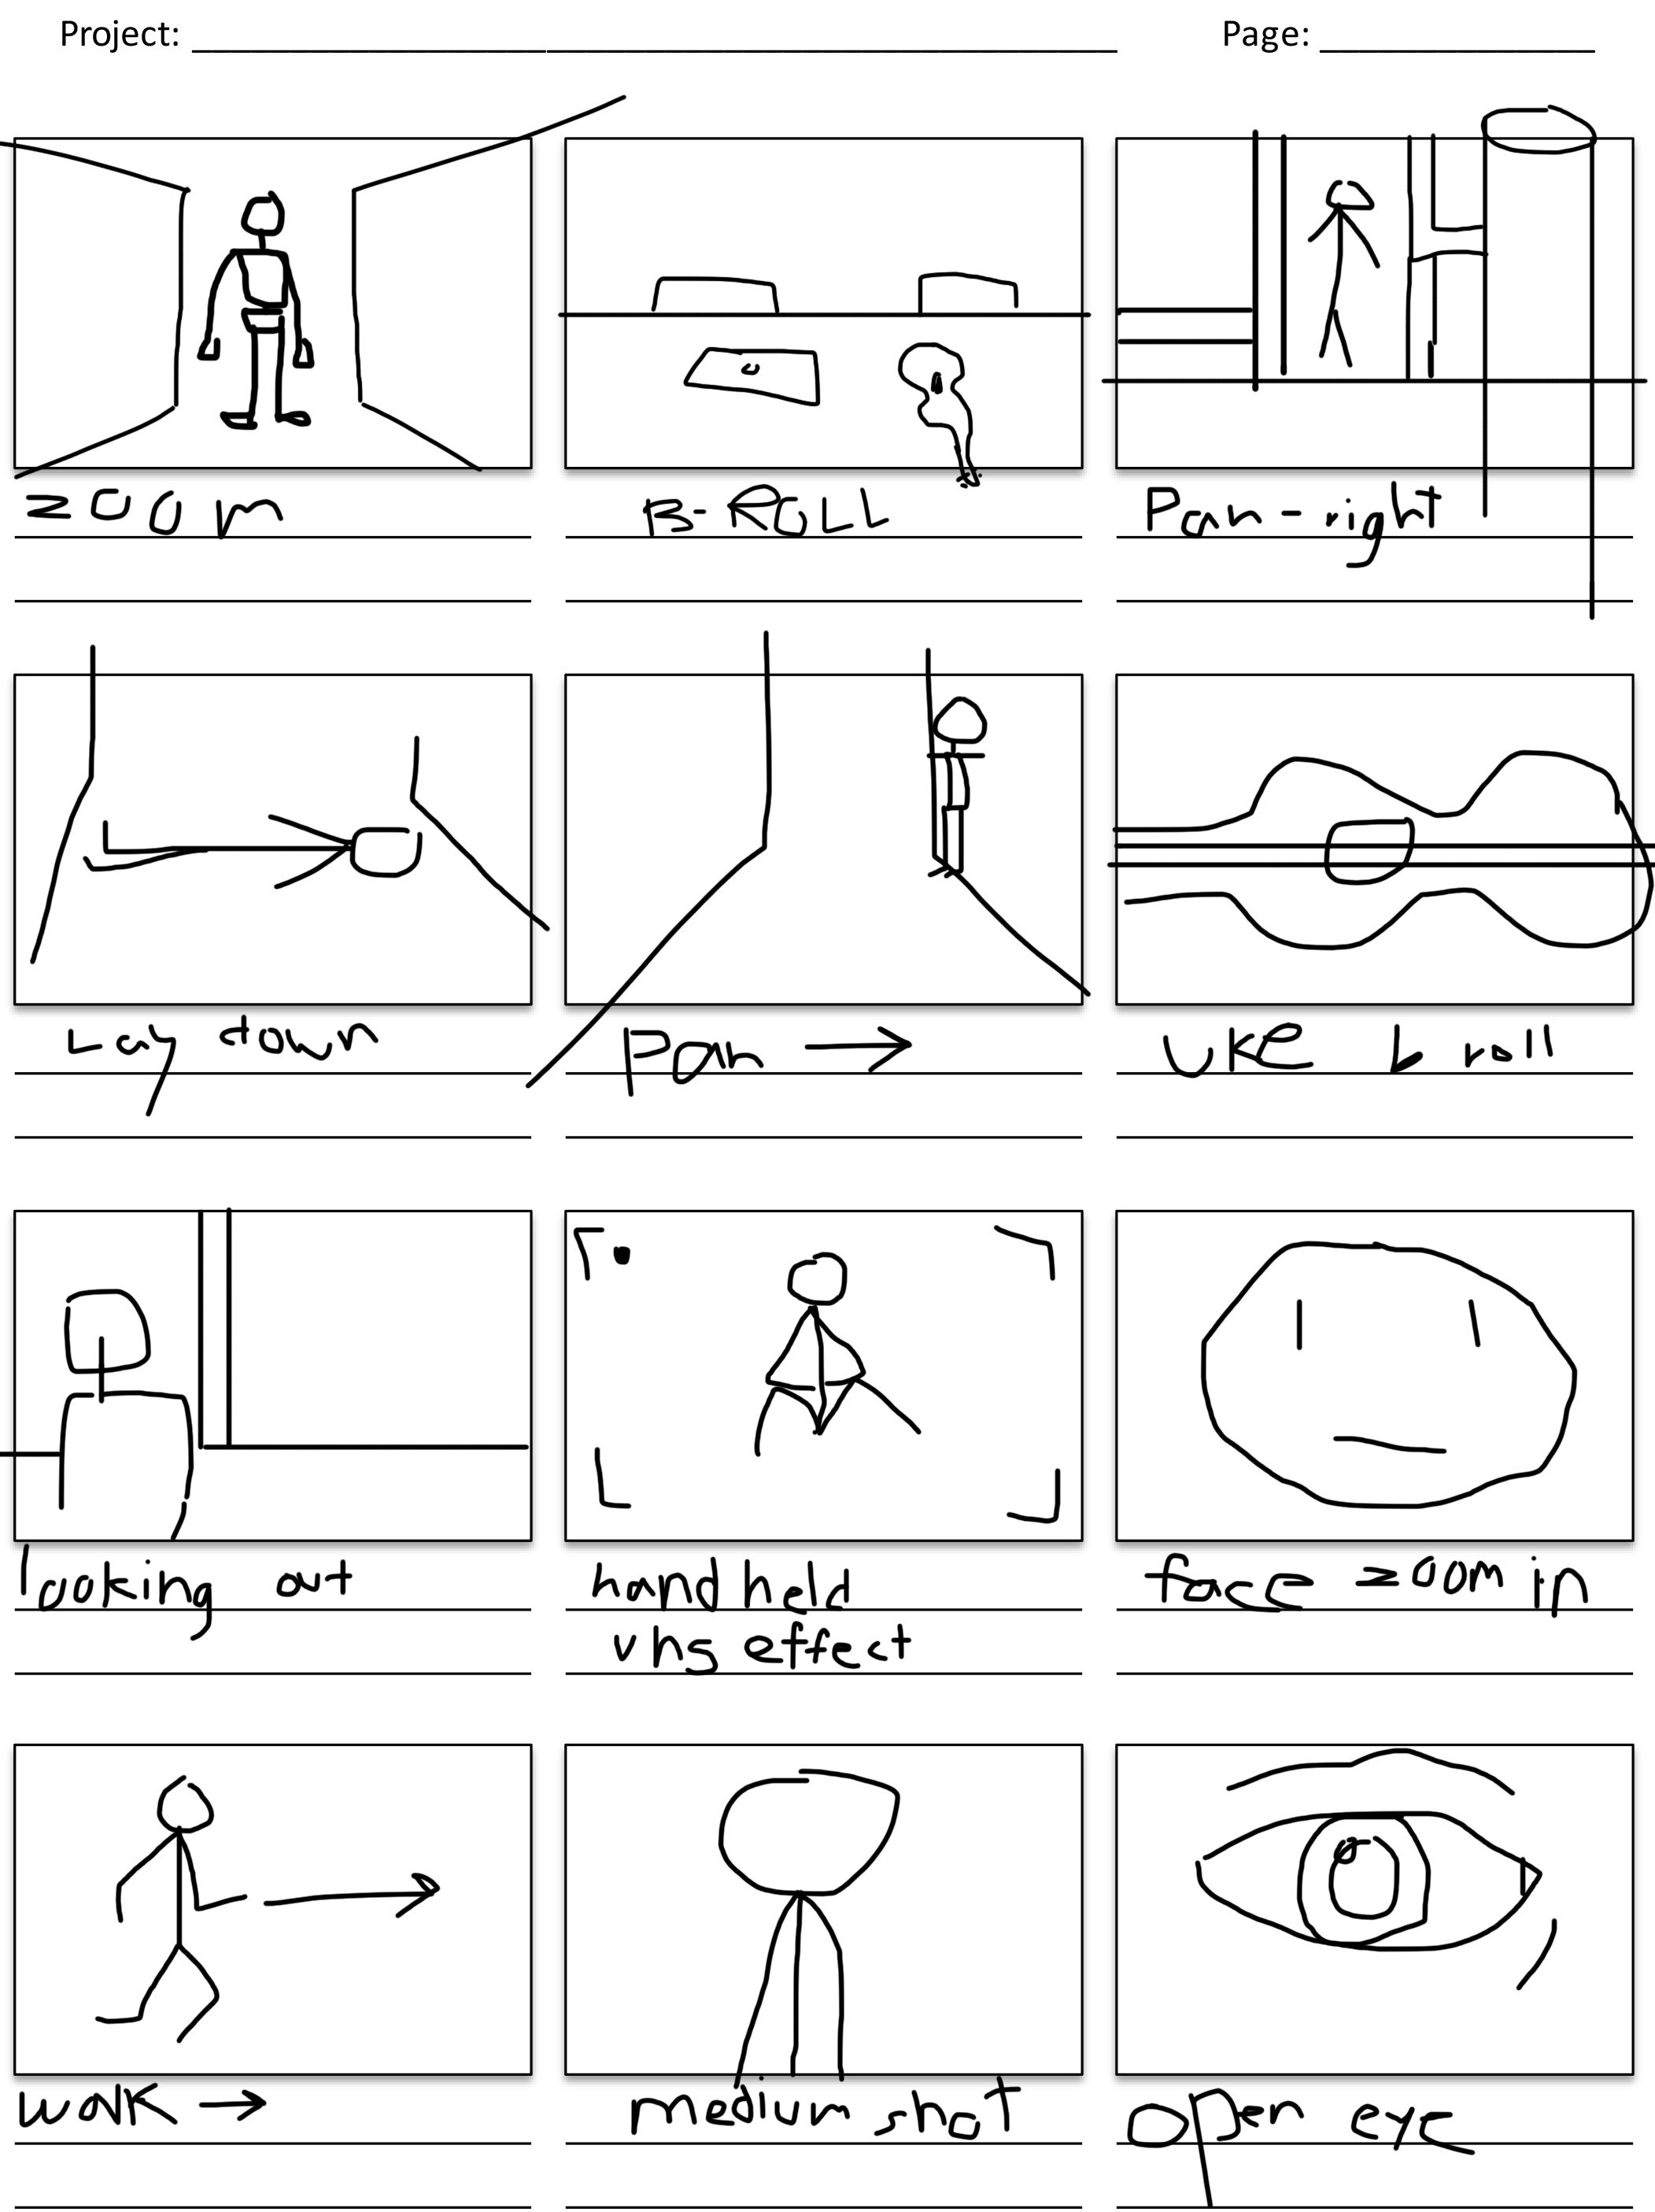 Project: Page:
zoom
B-ROLL
Pan-right
Lay down
Pan →
UKE b roll
looking out
hand held
vhs effect
face zoom in
walk →
medium shot
open eye